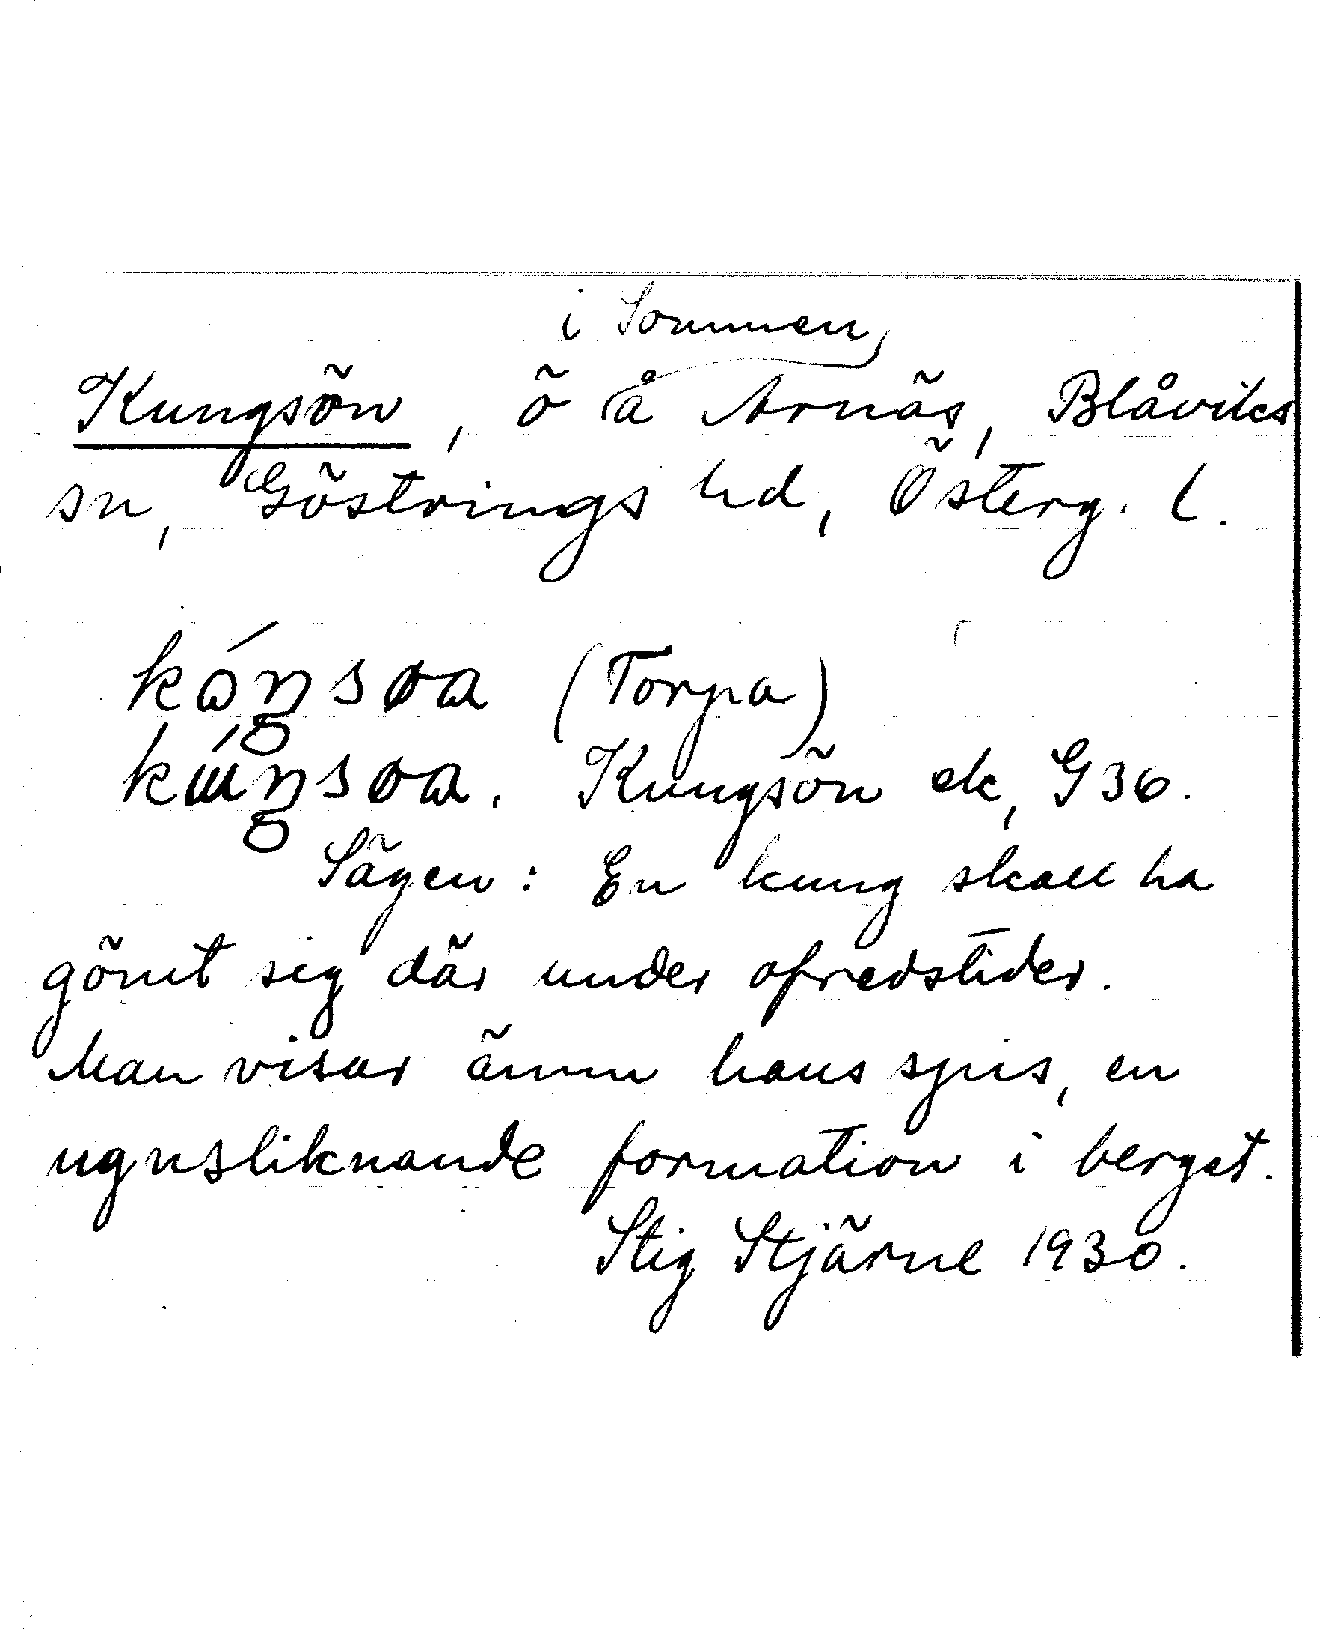 i Sommen,
Kungsön, ö å Arnäs, Blåviks
sn, Göstrings hd, Österg. l.
kóŋsøa (Torpa)
kúŋsøa. Kungsön ek, G36.
Sägen: En kung skall ha
gömt sig där under ofredstider.
Man visar ännu hans spis, en
ugnsliknande formation i berget.
Stig Stjärne 1930.